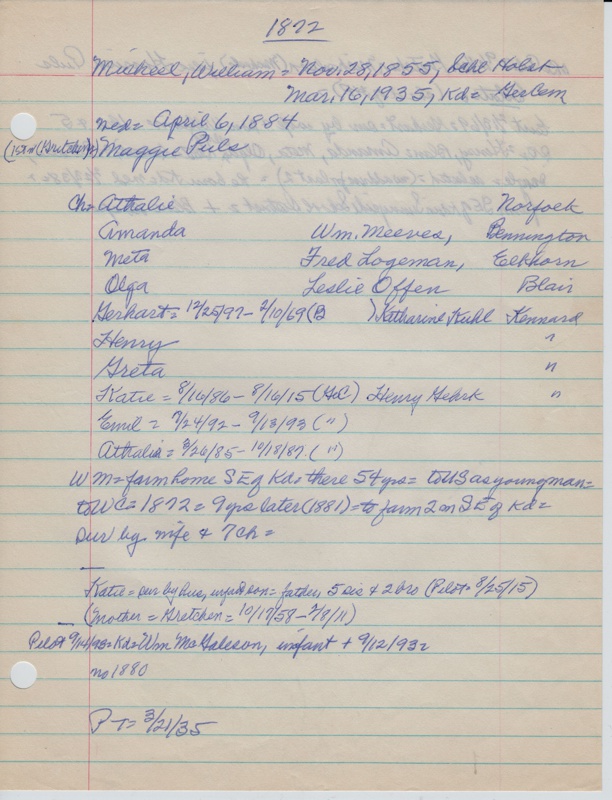 1872
Michael, William = Nov. 28, 1855, Holst
Mar. 16, 1935, Kd =
md = April 6, 1884
(1st =) Maggie Puls
Ch = Athalie Norfolk
Amanda Wm. Meeves, Bennington
Meta Fred Logeman, Elkhorn
Olga Leslie Offen Blair
Gerhart = 12/25/97 - 2/10/69 (B ) Katharine Kuhl Kennard
Henry "
Greta "
Katie = 8/16/86 - 8/16/15 (GC) Henry Gehrk "
Emil = 7/24/92 - 9/13/93 (")
Athalia = 3/26/85 - 10/18/87. (")
Wm = farm home SE of Kd = there 54 yrs = to US as young man =
to WC = 1872 = 9 yrs later (1881) = to farm 2 m SE of Kd =
sur by wife & 7 ch =
—
Katie = sur by hus, infant son = father, 5 sis & 2 bro (Pilot = 8/25/15)
(Mother = Gretchen = 10/17/58 - 2/8/11)
Pilot 9/14/93 = Kd = Wm infant + 9/12/93 =
no 1880
P T = 3/21/35